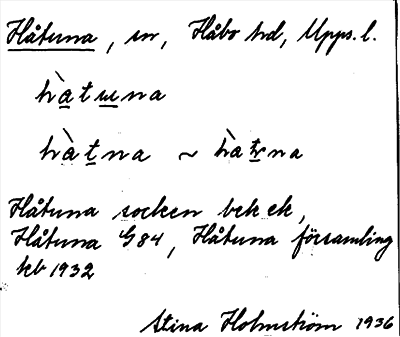 Håtuna, sn, Håbo hd, Upps. l.
hàtuna
hàtna ~ hàtna
Håtuna socken bek ek,
Håtuna G84, Håtuna församling
kb 1932
Stina Holmström 1936